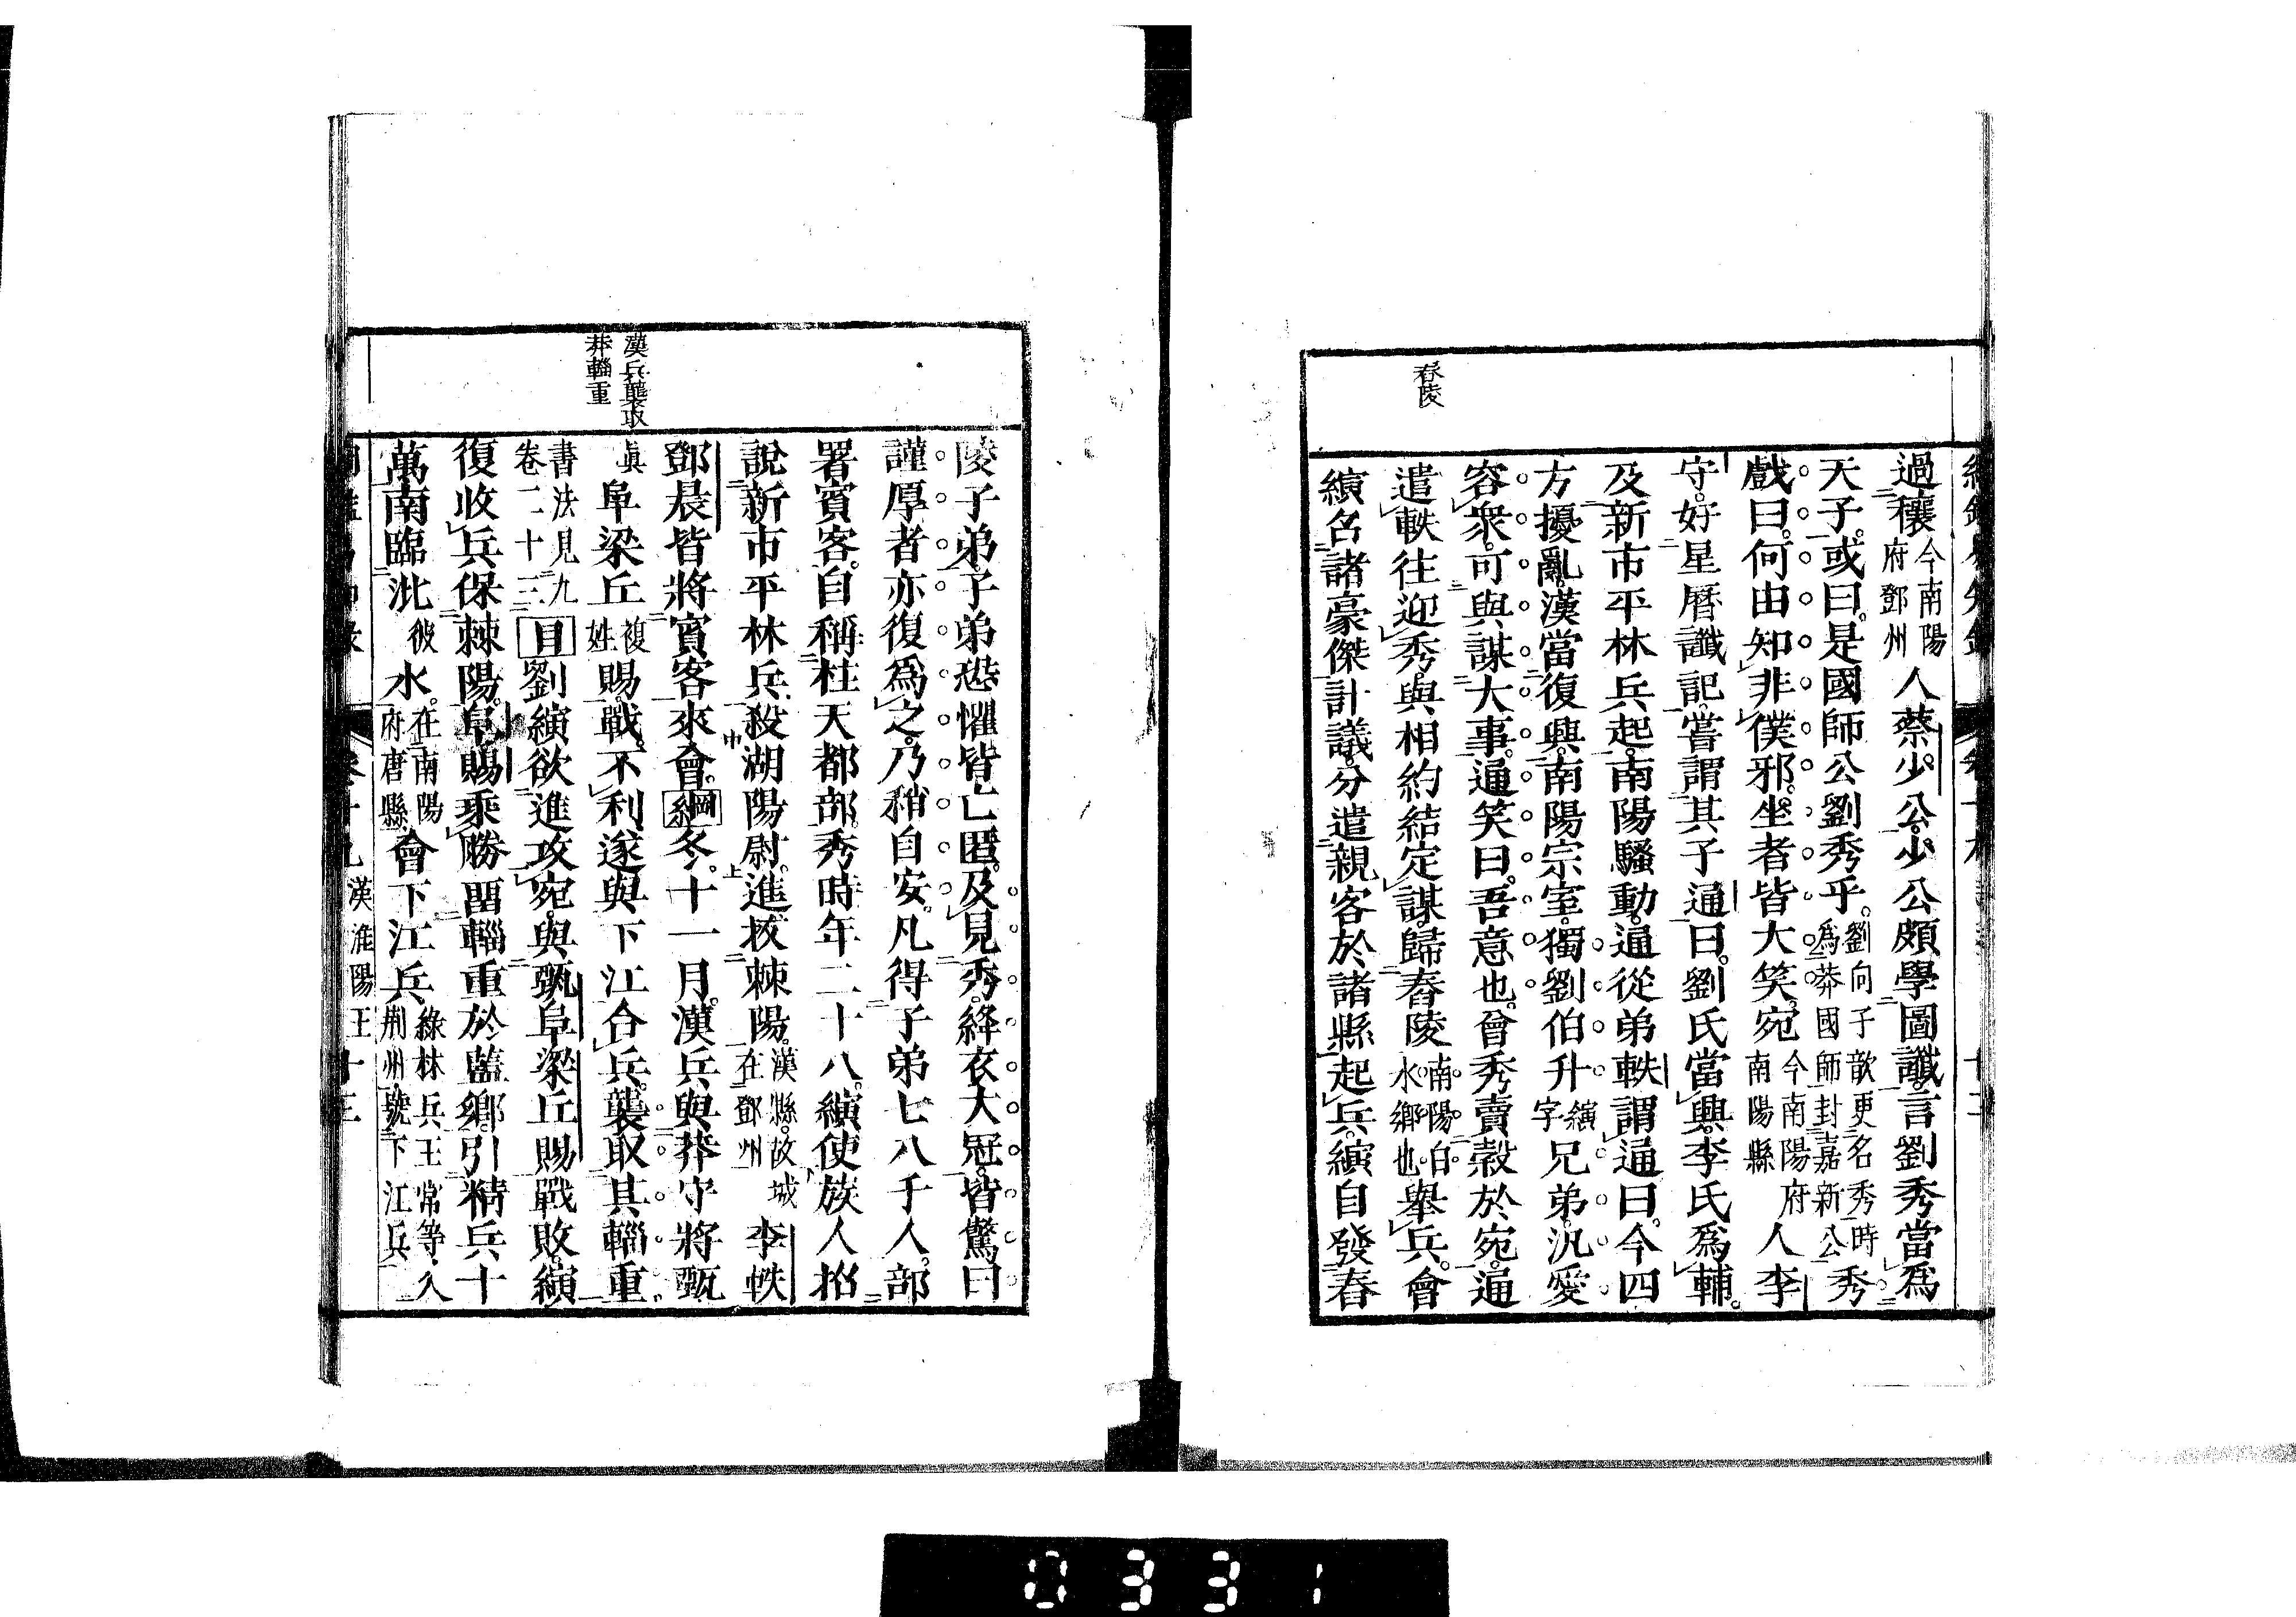 舂陵
過穰今南陽府鄧州人蔡少公少公頗學圖讖言劉秀當爲
天子。或曰。是國師公劉秀乎。劉向子歆更名秀時爲莽國師封嘉新公秀
戲曰。何由知非僕邪。坐者皆大笑。宛今南陽府南陽縣人李
守。好星曆讖記。嘗謂其子通曰。劉氏當興。李氏爲輔。
及新市平林兵起。南陽騷動。通從弟軼謂通曰。今四
方擾亂。漢當復興。南陽宗室。獨劉伯升縯字兄弟。汎愛
容衆。可與謀大事。通笑曰。吾意也。會秀賣穀於宛。通
遣軼往迎秀。與相約結定謀。歸舂陵南陽白水鄉也。舉兵。會
縯召諸豪傑計議。分遣親客於諸縣起兵。縯自發舂
漢兵襲取
莽輜重
陵子弟。子弟恐懼皆亡匿。及見秀絳衣大冠。皆驚曰
謹厚者亦復爲之。乃稍自安。凡得子弟七八千人。部
署賓客。自稱柱天都部。秀時年二十八。縯使族人招
說新市平林兵。殺湖陽尉。進拔棘陽。漢縣。故城在鄧州李軼
鄧晨皆將賓客來會。綱冬。十一月。漢兵與莽守將甄
眞阜梁丘複姓賜。戰。不利遂與下江合兵。襲取其輜重
書法見九卷二十三目劉縯欲進攻宛。與甄阜梁丘賜戰敗。縯
復收兵保棘陽。阜賜乘勝畱輜重於藍鄉。引精兵十
萬南臨沘彼水。在南陽府唐縣會下江兵綠林兵王常等。入荆州號下江兵
卷十九 漢淮陽王 十三